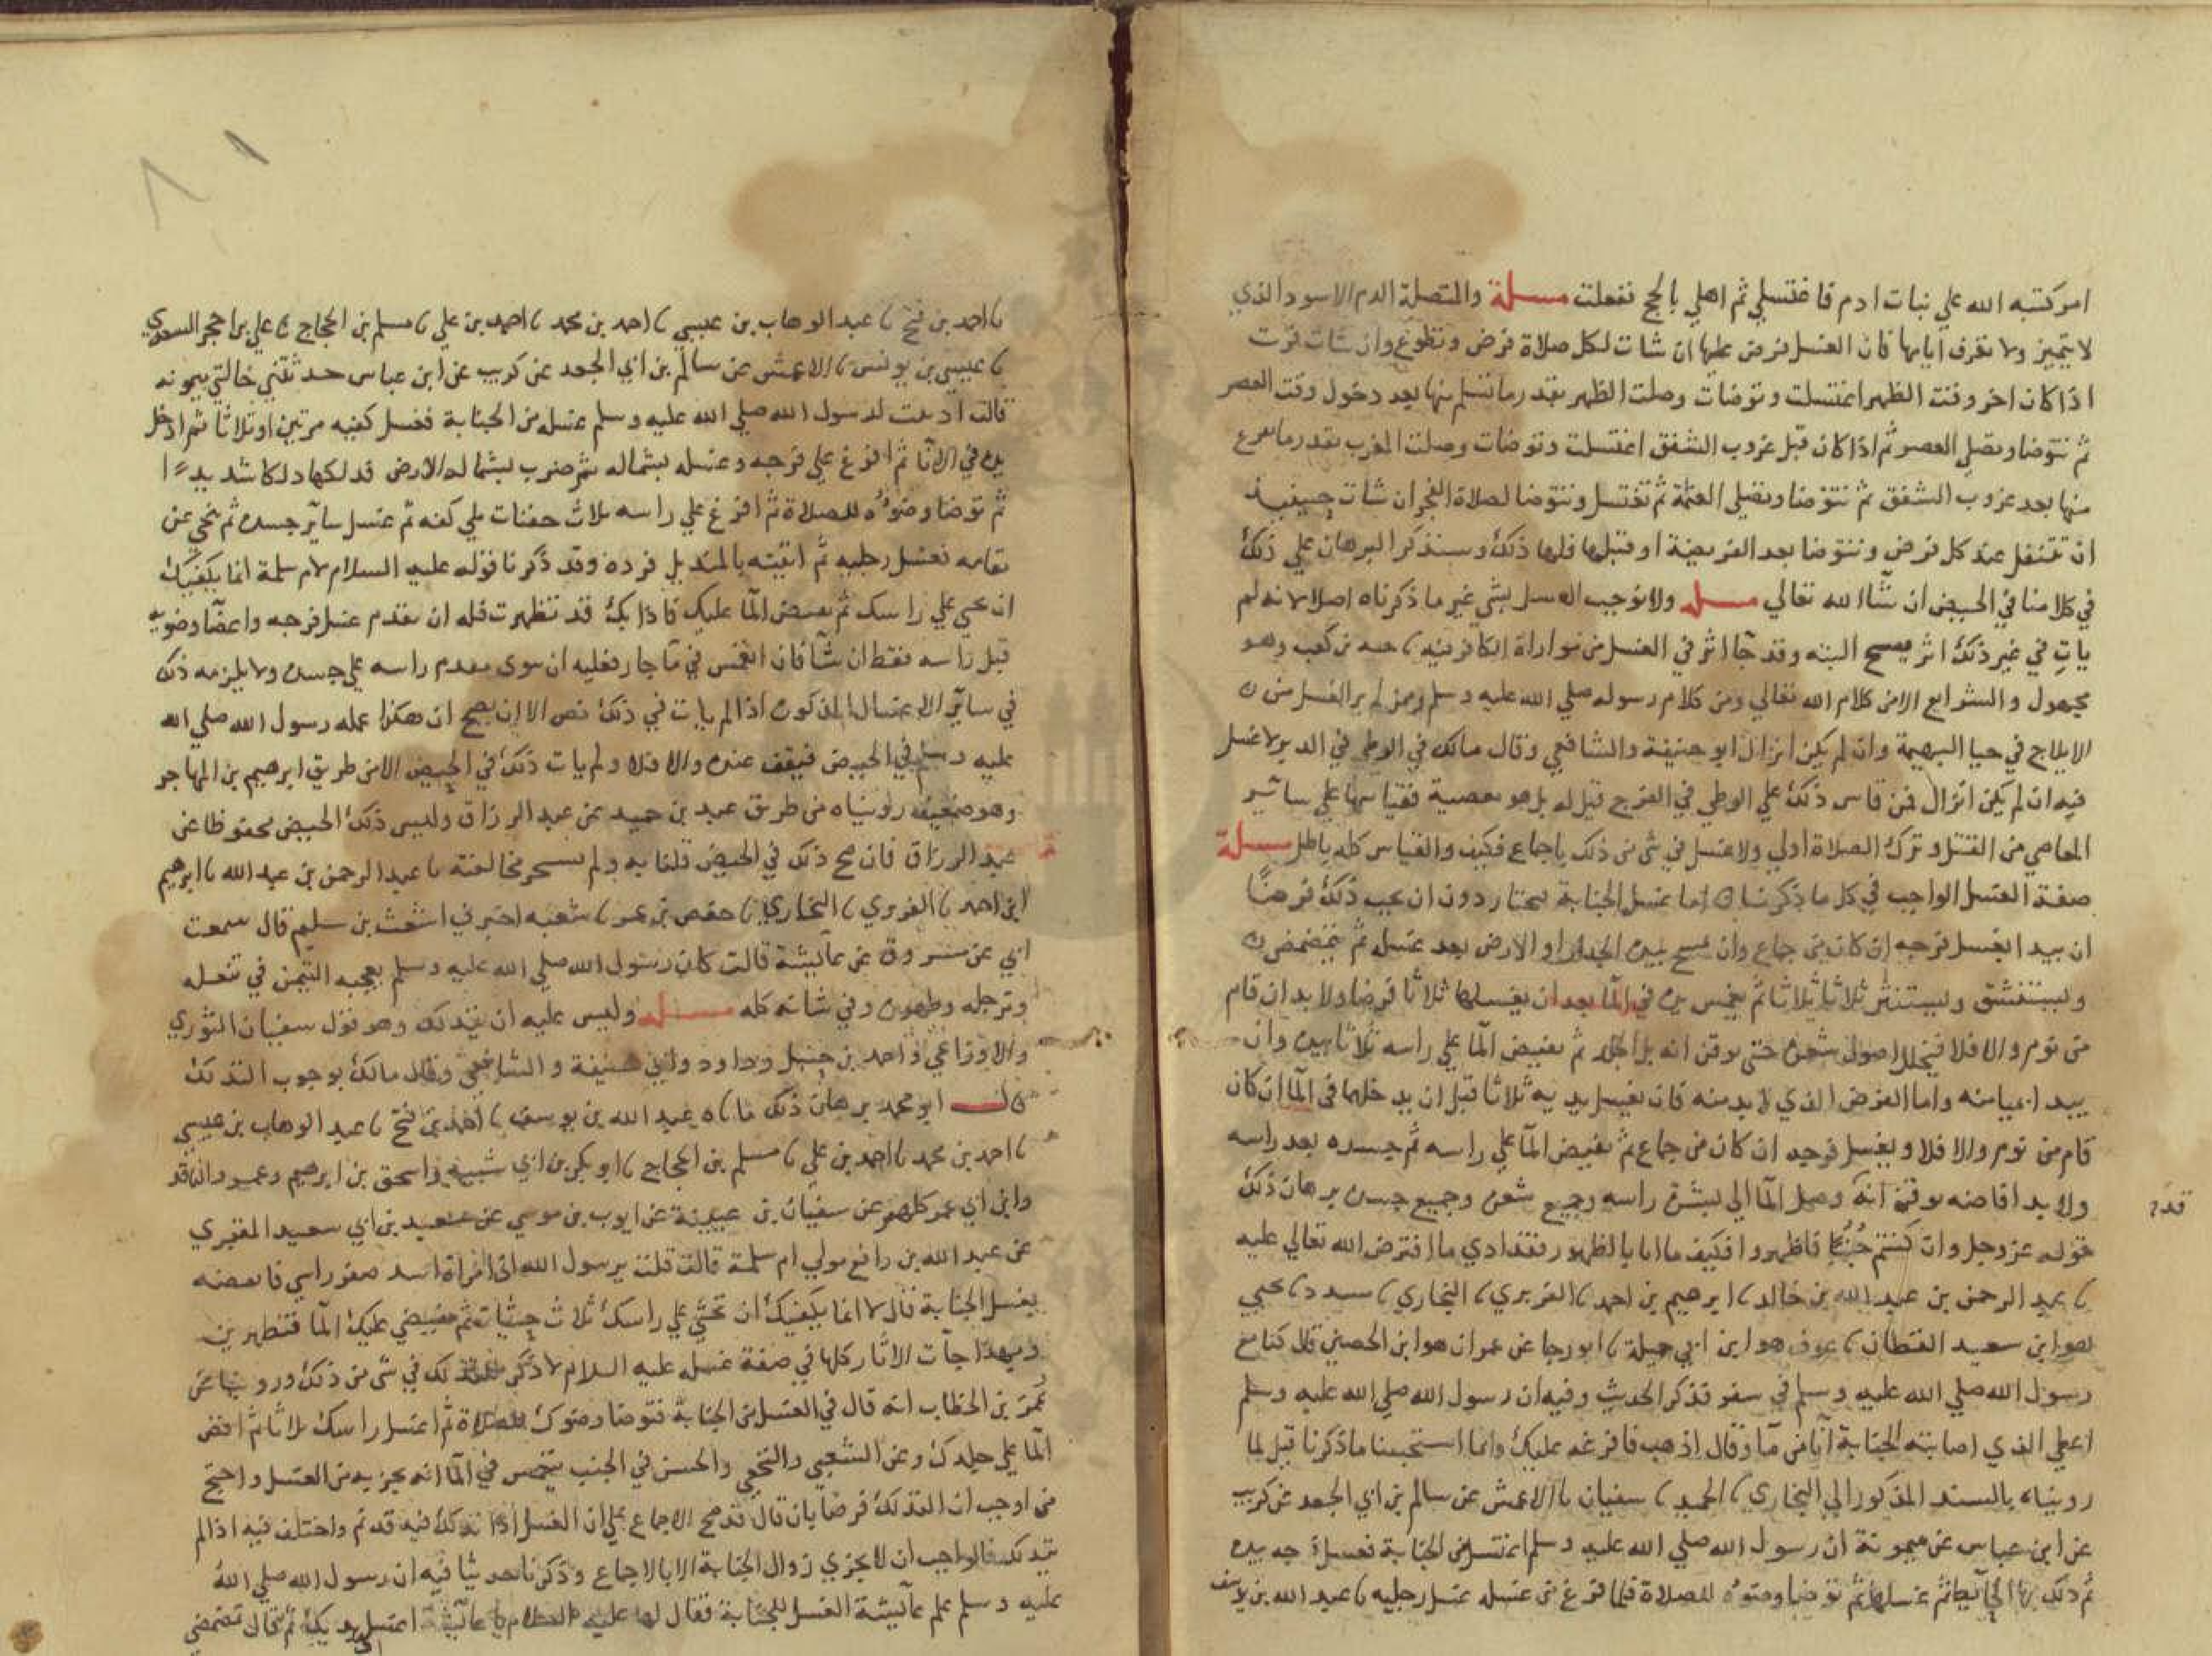 امر كتبه الله علي نبات ادم فاغتسلي ثم اهلي بالحج ففعلت مسلة والمتصلة الدم الاسود الذي
لا يتميز ولا نعرف ايامها فان الغسل فرض عليها ان شات لكل صلاة فرض وتطوع وان شات قرب
اذا كان اخر وقت الظهر اغتسلت وتوضات وصلت الظهر بقدر ما تسلم منها بعد دخول وقت العصر
ثم تتوضا وتصلي العصر ثم اذا كان قبل غروب الشفق اغتسلت وتوضات وصلت المغرب بقدر ما تفرغ
منها بعد غروب الشفق ثم تتوضا وتصلي العتمة ثم تغتسل وتتوضا لصلاة الفجر ان شات حينيذ
ان تتنفل عند كل فرض وتتوضا بعد الفريضة او قبلها فلها ذلك وسنذكر البرهان علي ذلك
في كلامنا في الحيض ان شآ الله تعالي مسلة ولا نوجب الغسل بشي غير ما ذكرناه اصلا لانه لم
يات في غير ذلك اثر يصح البته وقد جآ اثر في الغسل من مواراة الكافر فيه بن كعب وهو
مجهول والشرايع الامن كلام الله تعالي ومن كلام رسوله صلي الله عليه وسلم وممن لم ير الغسل من
الايلاج في حيا البهيمة وان لم يكن انزال ابو حنيفة والشافعي وقال مالك في الوطي في الدبر لا غسل
فيه ان لم يكن انزال فمن قاس ذلك علي الوطي في الفرج قيل له بل هو معصية فقياسها علي ساير
المعاصي من القتل وترك الصلاة اولي ولا غسل في شي من ذلك باجماع فكيف والقياس كله باطل مسلة
صفة الغسل الواجب في كل ما ذكرنا اما غسل الجنابة يختار دون ان يجب ذلك فرضًا
ان يبدا بغسل فرجه ان كان من جماع وان يمسح بيده الجدار او الارض بعد غسله ثم يتمضمض
ويستنشق ويستنثر ثلاثا ثلاثا ثم يغمس يده في المآ بعد ان يغسلها ثلاثا فرضا ولا بد ان قام
من نوم والا فلا فيخلل اصول شعره حتي يوقن انه بل الجلد ثم يفيض المآ علي راسه ثلاثا بيده وان
يبدا بميامنه واما الفرض الذي لا بد منه فان يغسل يديه ثلاثا قبل ان يدخلهما في المآ ان كان
قام من نوم والا فلا ويغسل فرجه ان كان من جماع ثم يفيض المآ علي راسه ثم جسده بعد راسه
ولا بد افاضه يوقن انه وصل المآ الي بشرة راسه وجميع شعره وجميع جسده برهان ذلك
قوله عز وجل وان كنتم جُنُبًا فاطهروا فكيف ما اتا بالطهور فقد ادي ما افترض الله تعالي عليه
نا عبد الرحمن بن عبد الله بن خالد نا ابرهيم بن احمد نا الفربري نا البخاري نا مسدد نا يحيي
هو ابن سعيد القطان نا عوف هو ابن ابي جميلة نا ابو رجا عن عمران هو ابن الحصين قال كنا مع
رسول الله صلي الله عليه وسلم في سفر فذكر الحديث وفيه ان رسول الله صلي الله عليه وسلم
اعطي الذي اصابته الجنابة انآ من مآ وقال اذهب فافرغه عليك وانما استحببنا ما ذكرنا قبل لما
رويناه بالسند المذكور الي البخاري نا الحميد نا سفيان نا الاعمش عن سالم بن ابي الجعد عن كريب
عن ابن عباس عن ميمونة ان رسول الله صلي الله عليه وسلم اغتسل من الجنابة فغسل فرجه بيده
ثم دلك بها الحآيط ثم غسلها ثم توضا وضوه للصلاة فلما فرغ من غسله غسل رجليه نا عبد الله بن يوسف
نا احمد بن فتح نا عبد الوهاب بن عيسي نا احمد بن محمد نا احمد بن علي نا مسلم بن الحجاج نا علي بن احجر السعدي
نا عيسي بن يونس نا الاعمش عن سالم بن ابي الجعد عن كريب عن ابن عباس حدثتني خالتي ميمونه
قالت ادنيت لرسول الله صلي الله عليه وسلم غسله من الجنابة فغسل كفيه مرتين او ثلاثا ثم ادخل
يده في الانآ ثم افرغ علي فرجه وغسله بشماله ثم ضرب بشماله الارض فدلكها دلكا شديدًا
ثم توضا وضوُه للصلاة ثم افرغ علي راسه ثلاث حفنات ملي كفه ثم غسل ساير جسده ثم تنحي عن
مقامه فغسل رجليه ثم اتيته بالمنديل فرده وقد ذكرنا قوله عليه السلام لام سلمة انما يكفيك
ان تحثي علي راسك ثم تفيض المآ عليك فاذا بك قد تطهرت فله ان يقدم غسل فرجه واعضآ وضويه
قبل راسه فقط ان شآ فان انغمس في مآ جار فعليه ان ينوي تقديم راسه علي جسده ولا يلزمه ذلك
في ساير الاغتسال المذكور اذا لم يات في ذلك نص الا ان يصح ان هكذا عمله رسول الله صلي الله
عليه وسلم في الحيض فيقف عنده والا فلا ولم يات ذلك في الحيض الا من طريق ابرهيم بن المهاجر
وهو ضعيف رويناه من طريق عبد بن حميد عن عبد الرزاق وليس ذلك الحيض محفوظا عن
عبد الرزاق فان صح ذلك في الحيض قلنا به ولم نستجز مخالفته نا عبد الرحمن بن عبد الله نا ابرهيم
ابن احمد نا الفربري نا البخاري نا حفص بن عمر نا شعبه اخبرني اشعث بن سليم قال سمعت
ابي عن مسروق عن عآيشة قالت كان رسول الله صلي الله عليه وسلم يعجبه التيمن في تنعله
وترجله وطهوره وفي شانه كله مسلة وليس عليه ان يتدلك وهو قول سفيان الثوري
والاوزاعي واحمد بن حنبل وداود وابي حنيفة والشافعي وقال مالك بوجوب التدلك
قال ابو محمد برهان ذلك ما ناه عبد الله بن يوسف نا احمد بن فتح نا عبد الوهاب بن عيسي
نا احمد بن محمد نا احمد بن علي نا مسلم بن الحجاج نا ابو بكر بن ابي شيبه واسحق بن ابرهيم وعمرو الناقد
وابن ابي عمر كلهم عن سفيان بن عيينة عن ايوب بن موسي عن سعيد بن ابي سعيد المقبري
عن عبد الله بن رافع مولي ام سلمة قالت قلت يرسول الله اني امراة اشد ضفر راسي فانقضه
بغسل الجنابة قال لا انما يكفيك ان تحثي علي راسك ثلاث حثيات ثم تفيضي عليك المآ فتطهرين
وبهذا جآت الاثار كلها في صفة غسله عليه السلام لا ذكر للتدلك في شي من ذلك وروينا عن
عُمَر بن الخطاب انه قال في الغسل من الجنابة فتوضا وضوك للصلاة ثم اغسل راسك ثلاثا ثم افض
المآ علي جلدك وعن الشعبي والنخعي والحسن في الجنب يتغمس في المآ انه يجزيه من الغسل واحتج
من اوجب ان التدلك فرضا بان قال قد صح الاجماع علي ان الغسل اذا تدلك فيه قد تم واختلف فيه اذا لم
يتدلك فالواجب ان لا يجزي زوال الجنابة الا بالاجماع وذكرنا حديثا فيه ان رسول الله صلي الله
عليه وسلم علم عآيشة الغسل للجنابة فقال لها عليه السلام يا عآيشة اغسلي يديك ثم قال تمضمضي